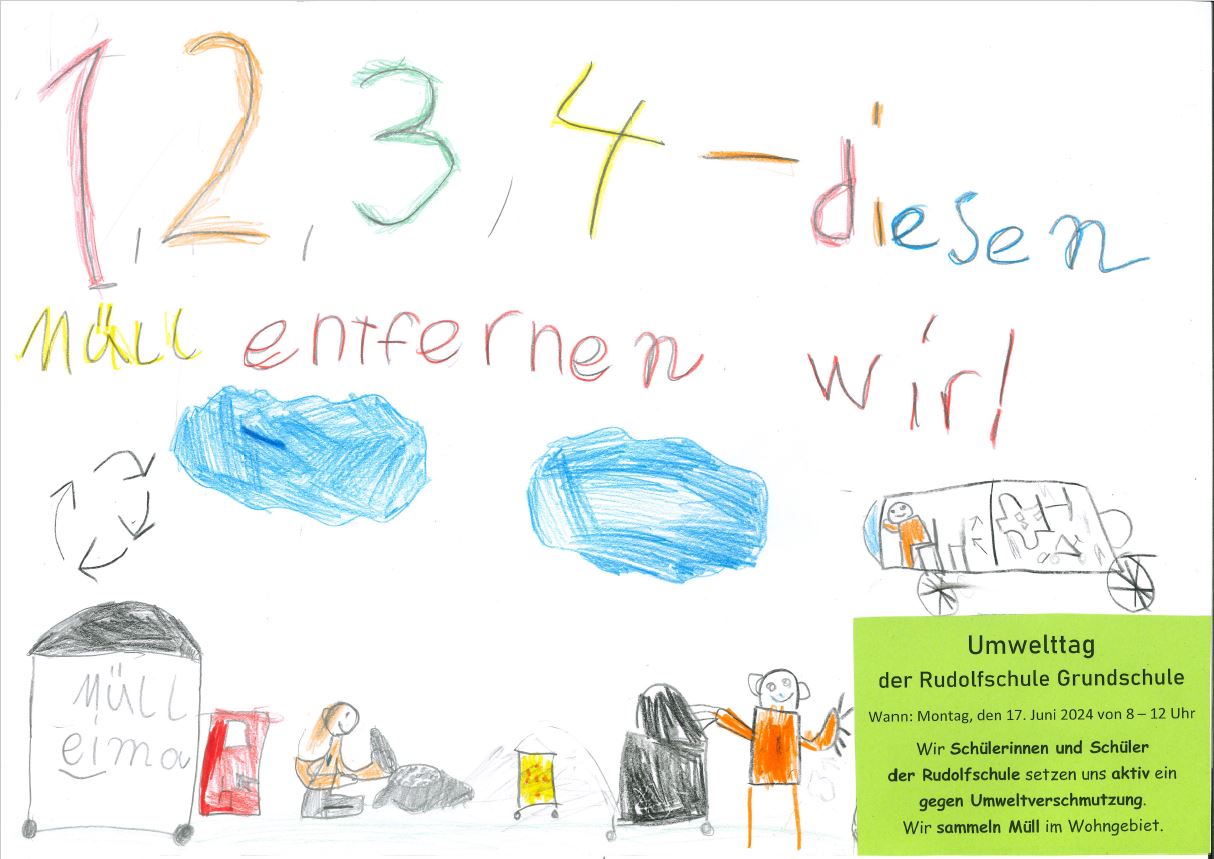 1, 2, 3, 4 – diesen
Müll entfernen wir!
MÜLL
eima
Umwelttag
der Rudolfschule Grundschule
Wann: Montag, den 17. Juni 2024 von 8 – 12 Uhr
Wir Schülerinnen und Schüler
der Rudolfschule setzen uns aktiv ein
gegen Umweltverschmutzung.
Wir sammeln Müll im Wohngebiet.